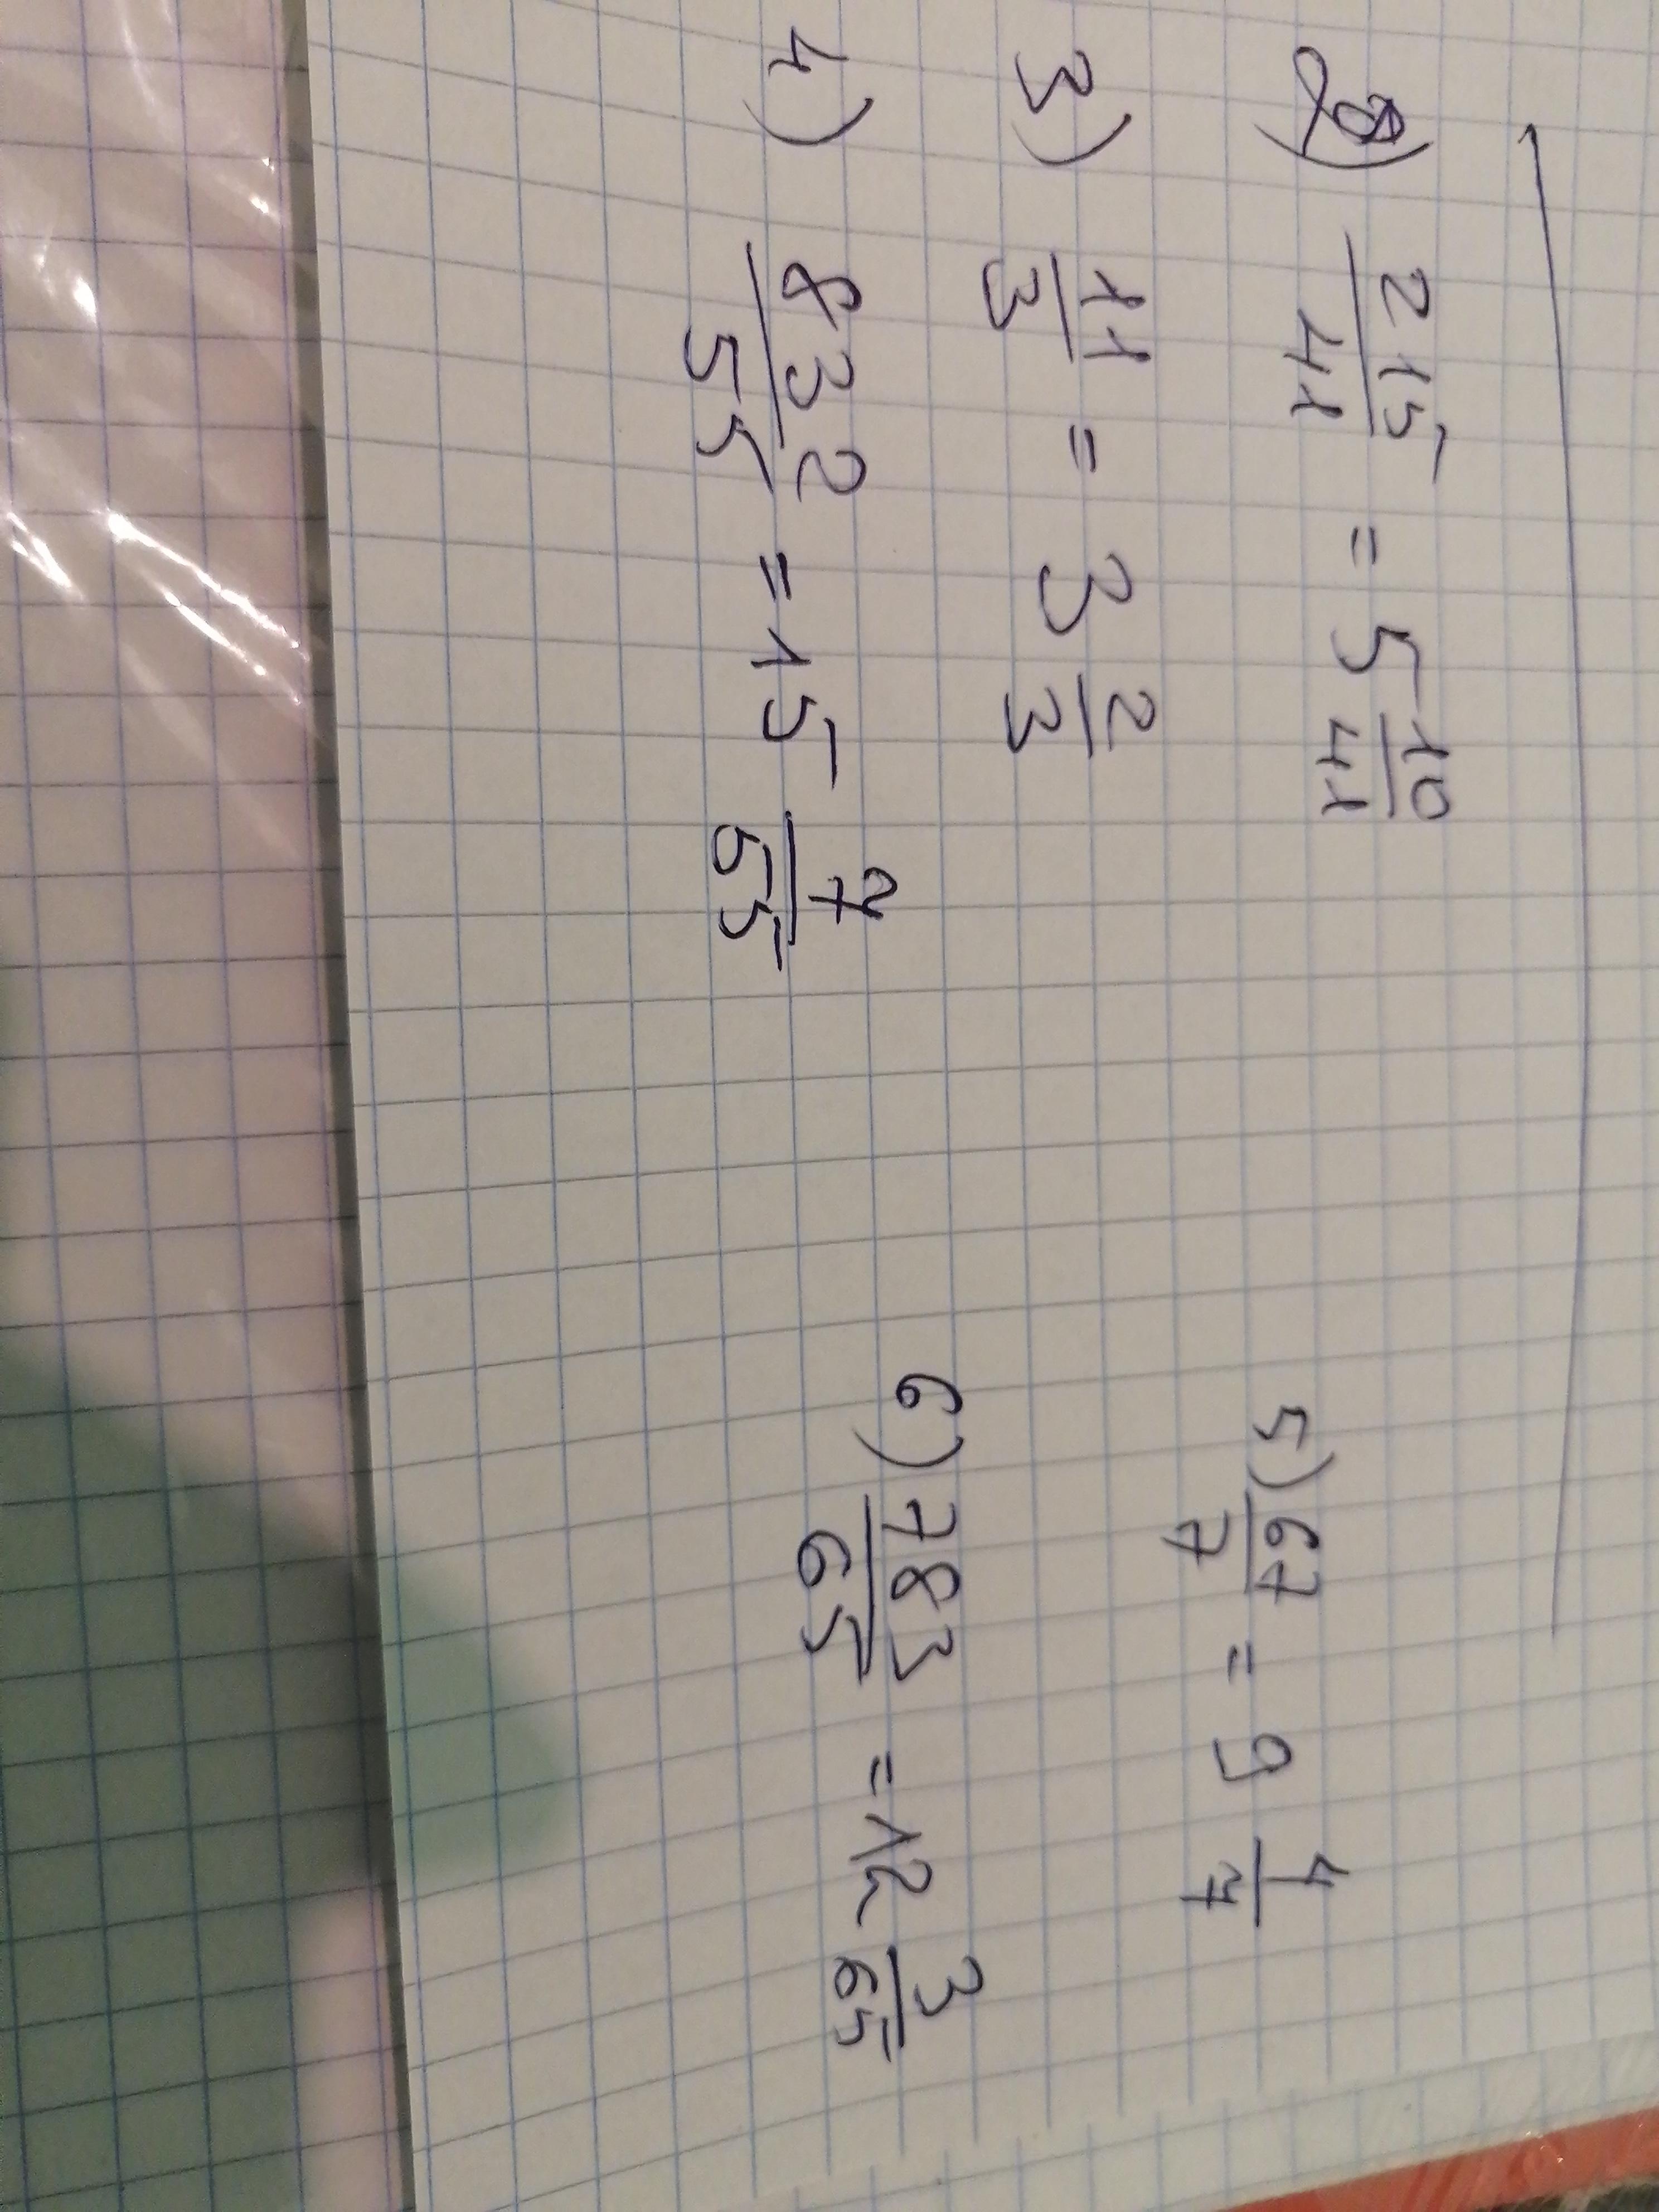 2) 215/41 = 5 10/41
3) 11/3 = 3 2/3
4) 832/55 = 15 7/55
5) 67/7 = 9 4/7
6) 783/65 = 12 3/65